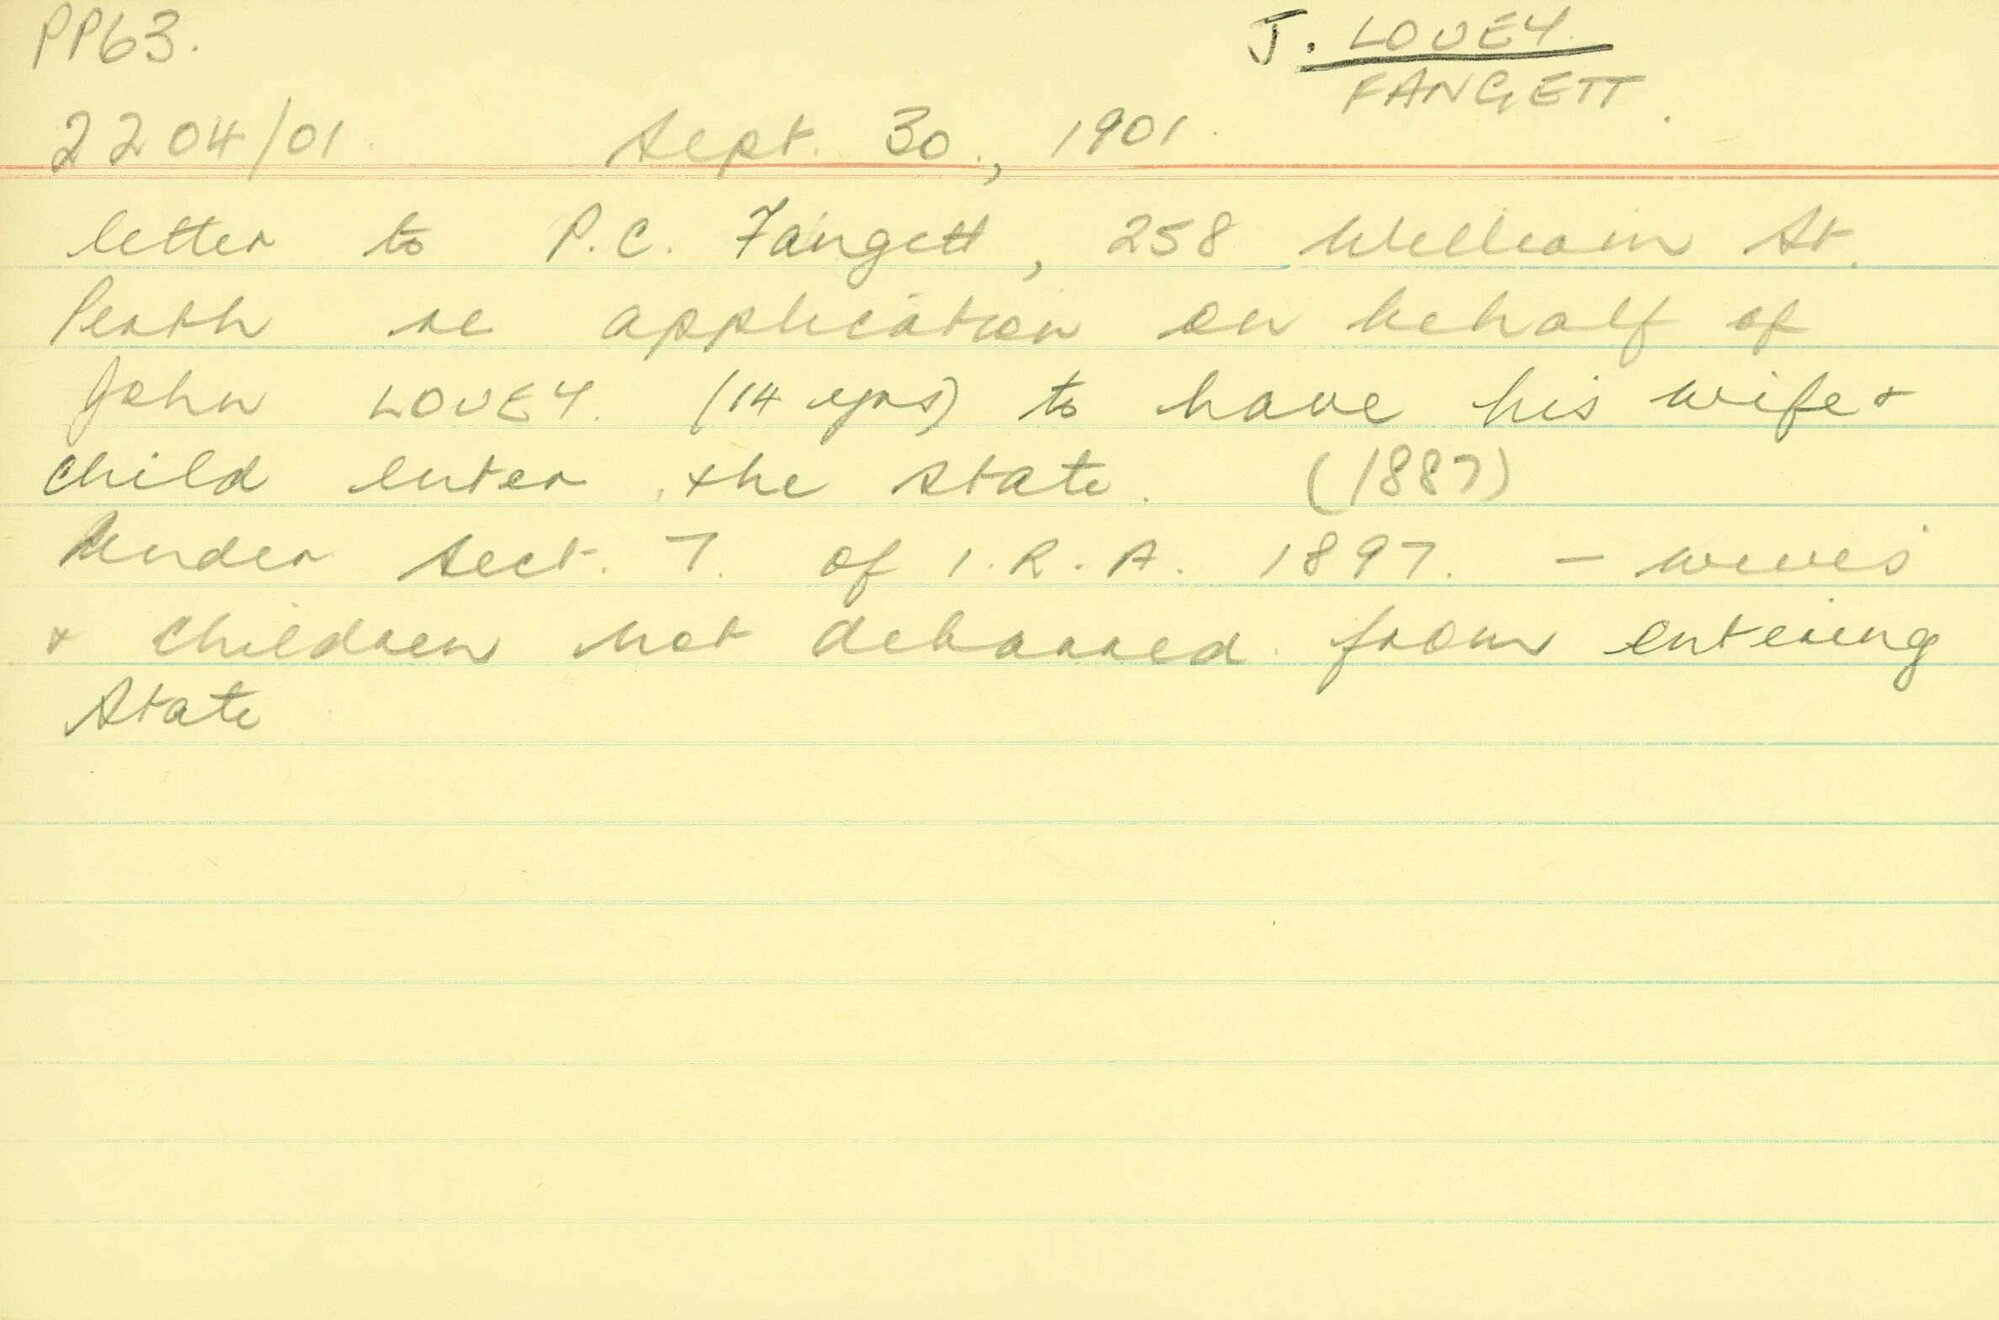 PP63.
J. LOVEY.
FANGETT.
2204/01. Sept. 30., 1901.
letter to P.C. Fangett, 258 William St.
Perth re application on behalf of
John LOVEY. (14 yrs) to have his wife +
child enter the state. (1887)
Under Sect. 7. of I.R.A. 1897. - wives
+ children not debarred from entering
State